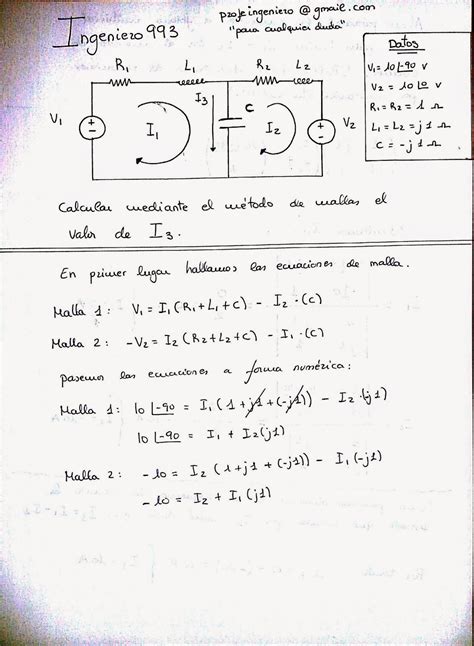 Ingeniero 993
profeingeniero @ gmail.com
"para cualquier duda"
Datos
V1 = 10 ∟-90 v
V2 = 10 ∟0 v
R1 = R2 = 1 Ω
L1 = L2 = j1 Ω
C = -j 1 Ω
R1 L1 R2 L2
V1 I1 I3 C I2 V2
Calcular mediante el método de mallas el
valor de I3.
En primer lugar hallamos las ecuaciones de malla.
Malla 1: V1 = I1 (R1 + L1 + C) - I2 · (C)
Malla 2: -V2 = I2 (R2 + L2 + C) - I1 · (C)
pasemos las ecuaciones a forma numérica:
Malla 1: 10 ∟-90 = I1 (1 + j1 + (-j1)) - I2 · (j1)
10 ∟-90 = I1 + I2 (j1)
Malla 2: -10 = I2 (1 + j1 + (-j1)) - I1 (-j1)
-10 = I2 + I1 (j1)